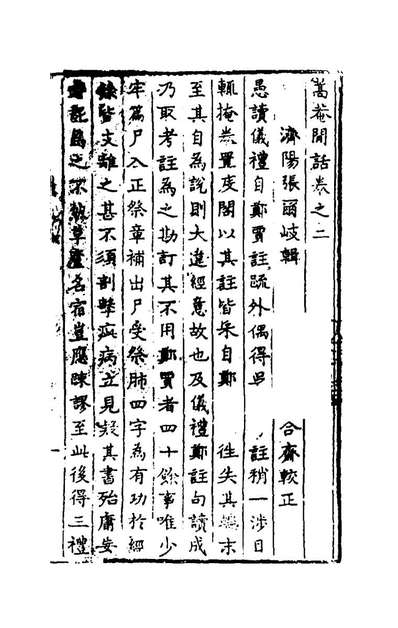 蒿菴閒話卷之二
濟陽張爾岐輯　合齋較正
愚讀儀禮自鄭賈註疏外偶得吳　註稍一涉目
輒掩卷置庋閣以其註皆采自鄭　徃失其　末
至其自為說則大違經意故也及儀禮鄭註句讀成
乃取考註為之勘訂其不用鄭賈者四十餘事唯少
牢篇尸入正祭章補出尸受祭肺四字為有功於經
餘皆支離之甚不須剖擊疵病立見疑其書殆庸妄
者託為之不然草廬名宿豈應疎謬至此後得三禮